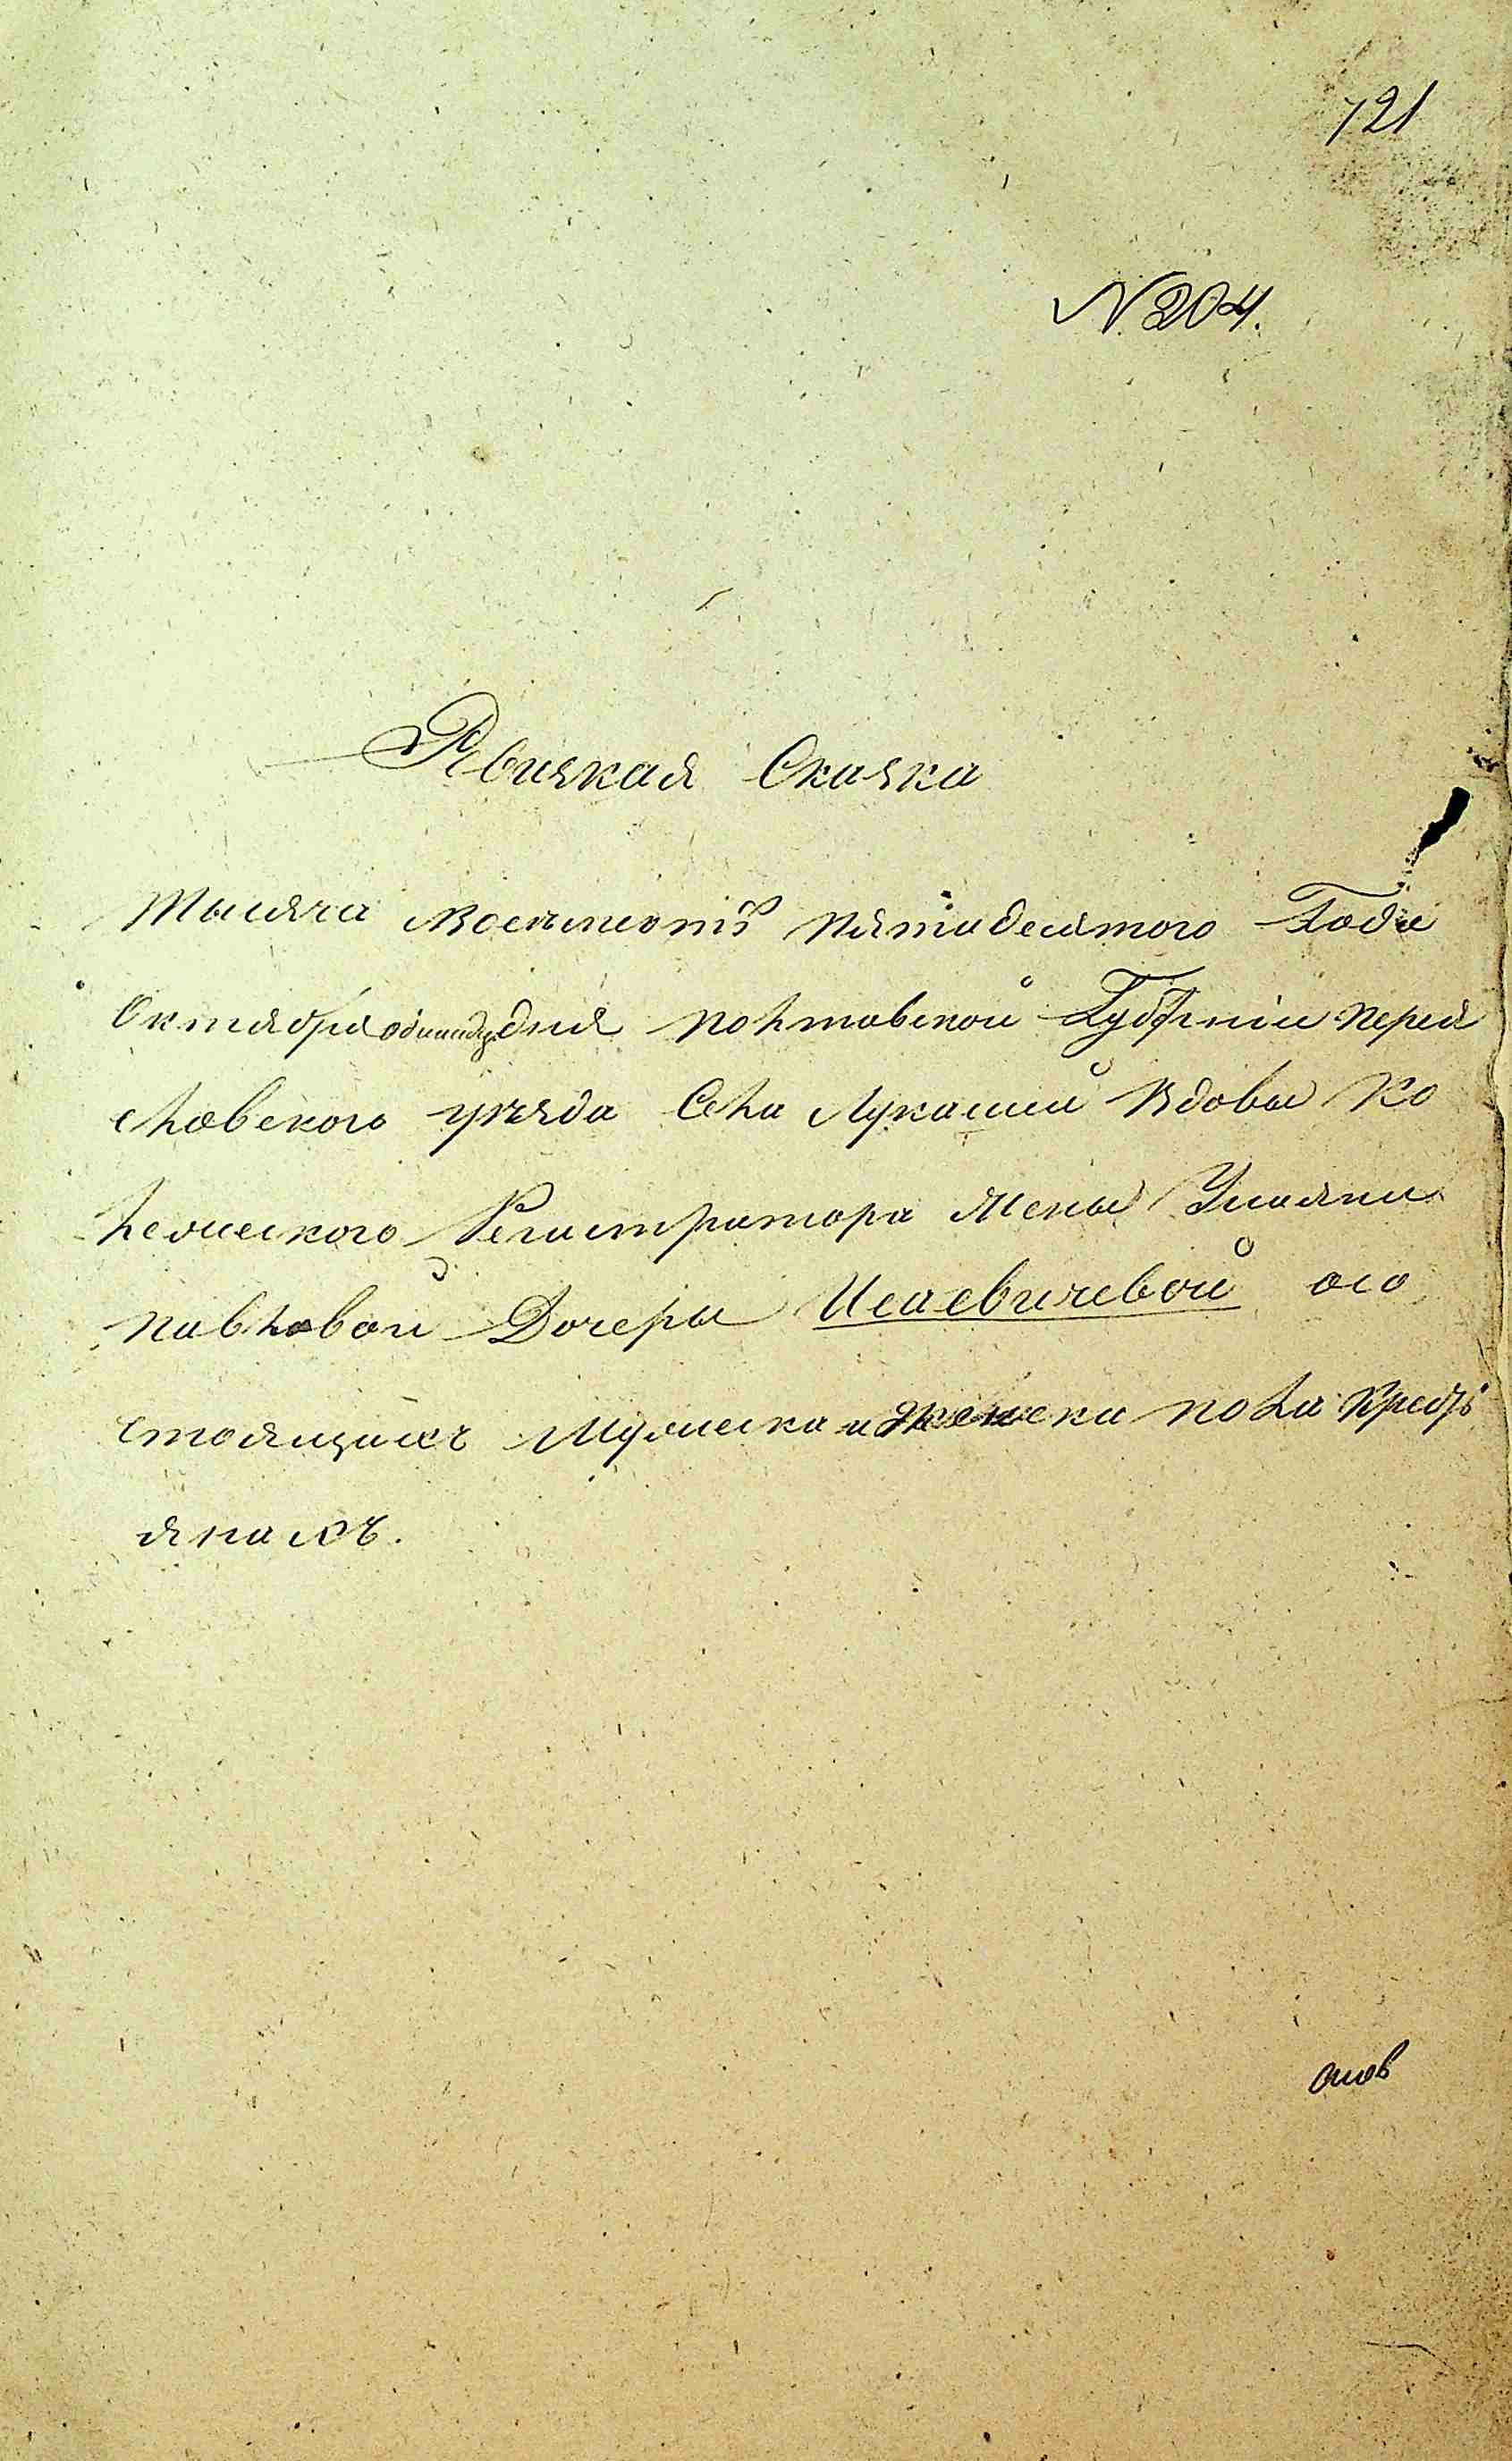 721
N 204.
Ревизкая Сказка
Тысяча Восемсотъ пятидесятого Года
Октября одинадц. дня полтавской Губерніи перея
словского уезда Села Лукашей Вдовы Ко
лежского Регистратора Жены Ульяны
павловой Дочеры Исаевичевой осо
стоящихъ Мужеска и женска пола Крестъ
янахъ.